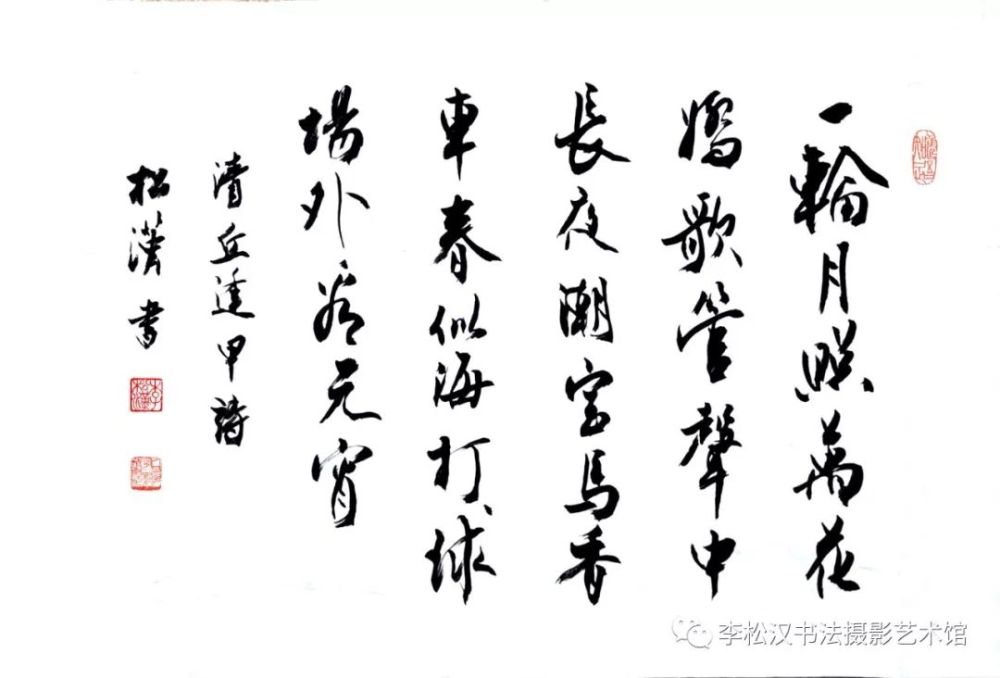 一輪月照萬花
嬌歌管聲中
長夜潮寶馬香
車春似海打球
場外看元宵
清丘逢甲詩
松漢書
李松汉书法摄影艺术馆